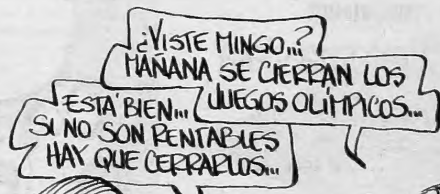 ¿VISTE MINGO...?
MAÑANA SE CIERRAN LOS
JUEGOS OLÍMPICOS...
ESTÁ BIEN...
SI NO SON RENTABLES
HAY QUE CERRARLOS...